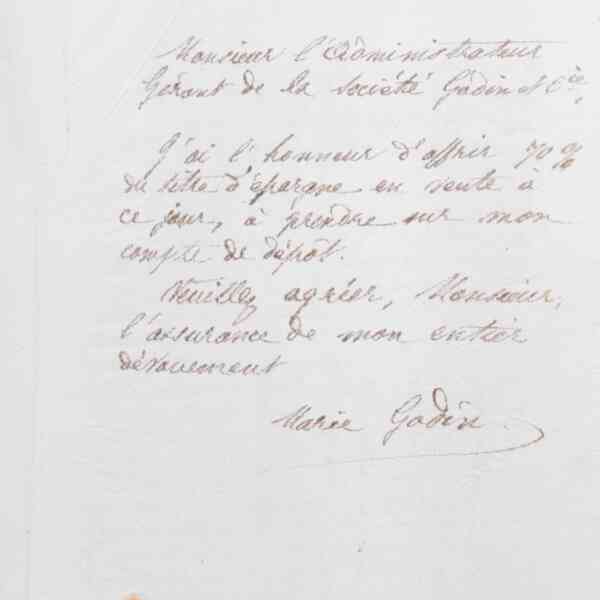 Monsieur l'Administrateur
Gérant de la Société Godin & Cie,
J'ai l'honneur d'offrir 70%
du titre d'épargne en vente à
ce jour, à prendre sur mon
compte de dépôt.
Veuillez agréer, Monsieur,
l'assurance de mon entier
dévouement
Marie Godin